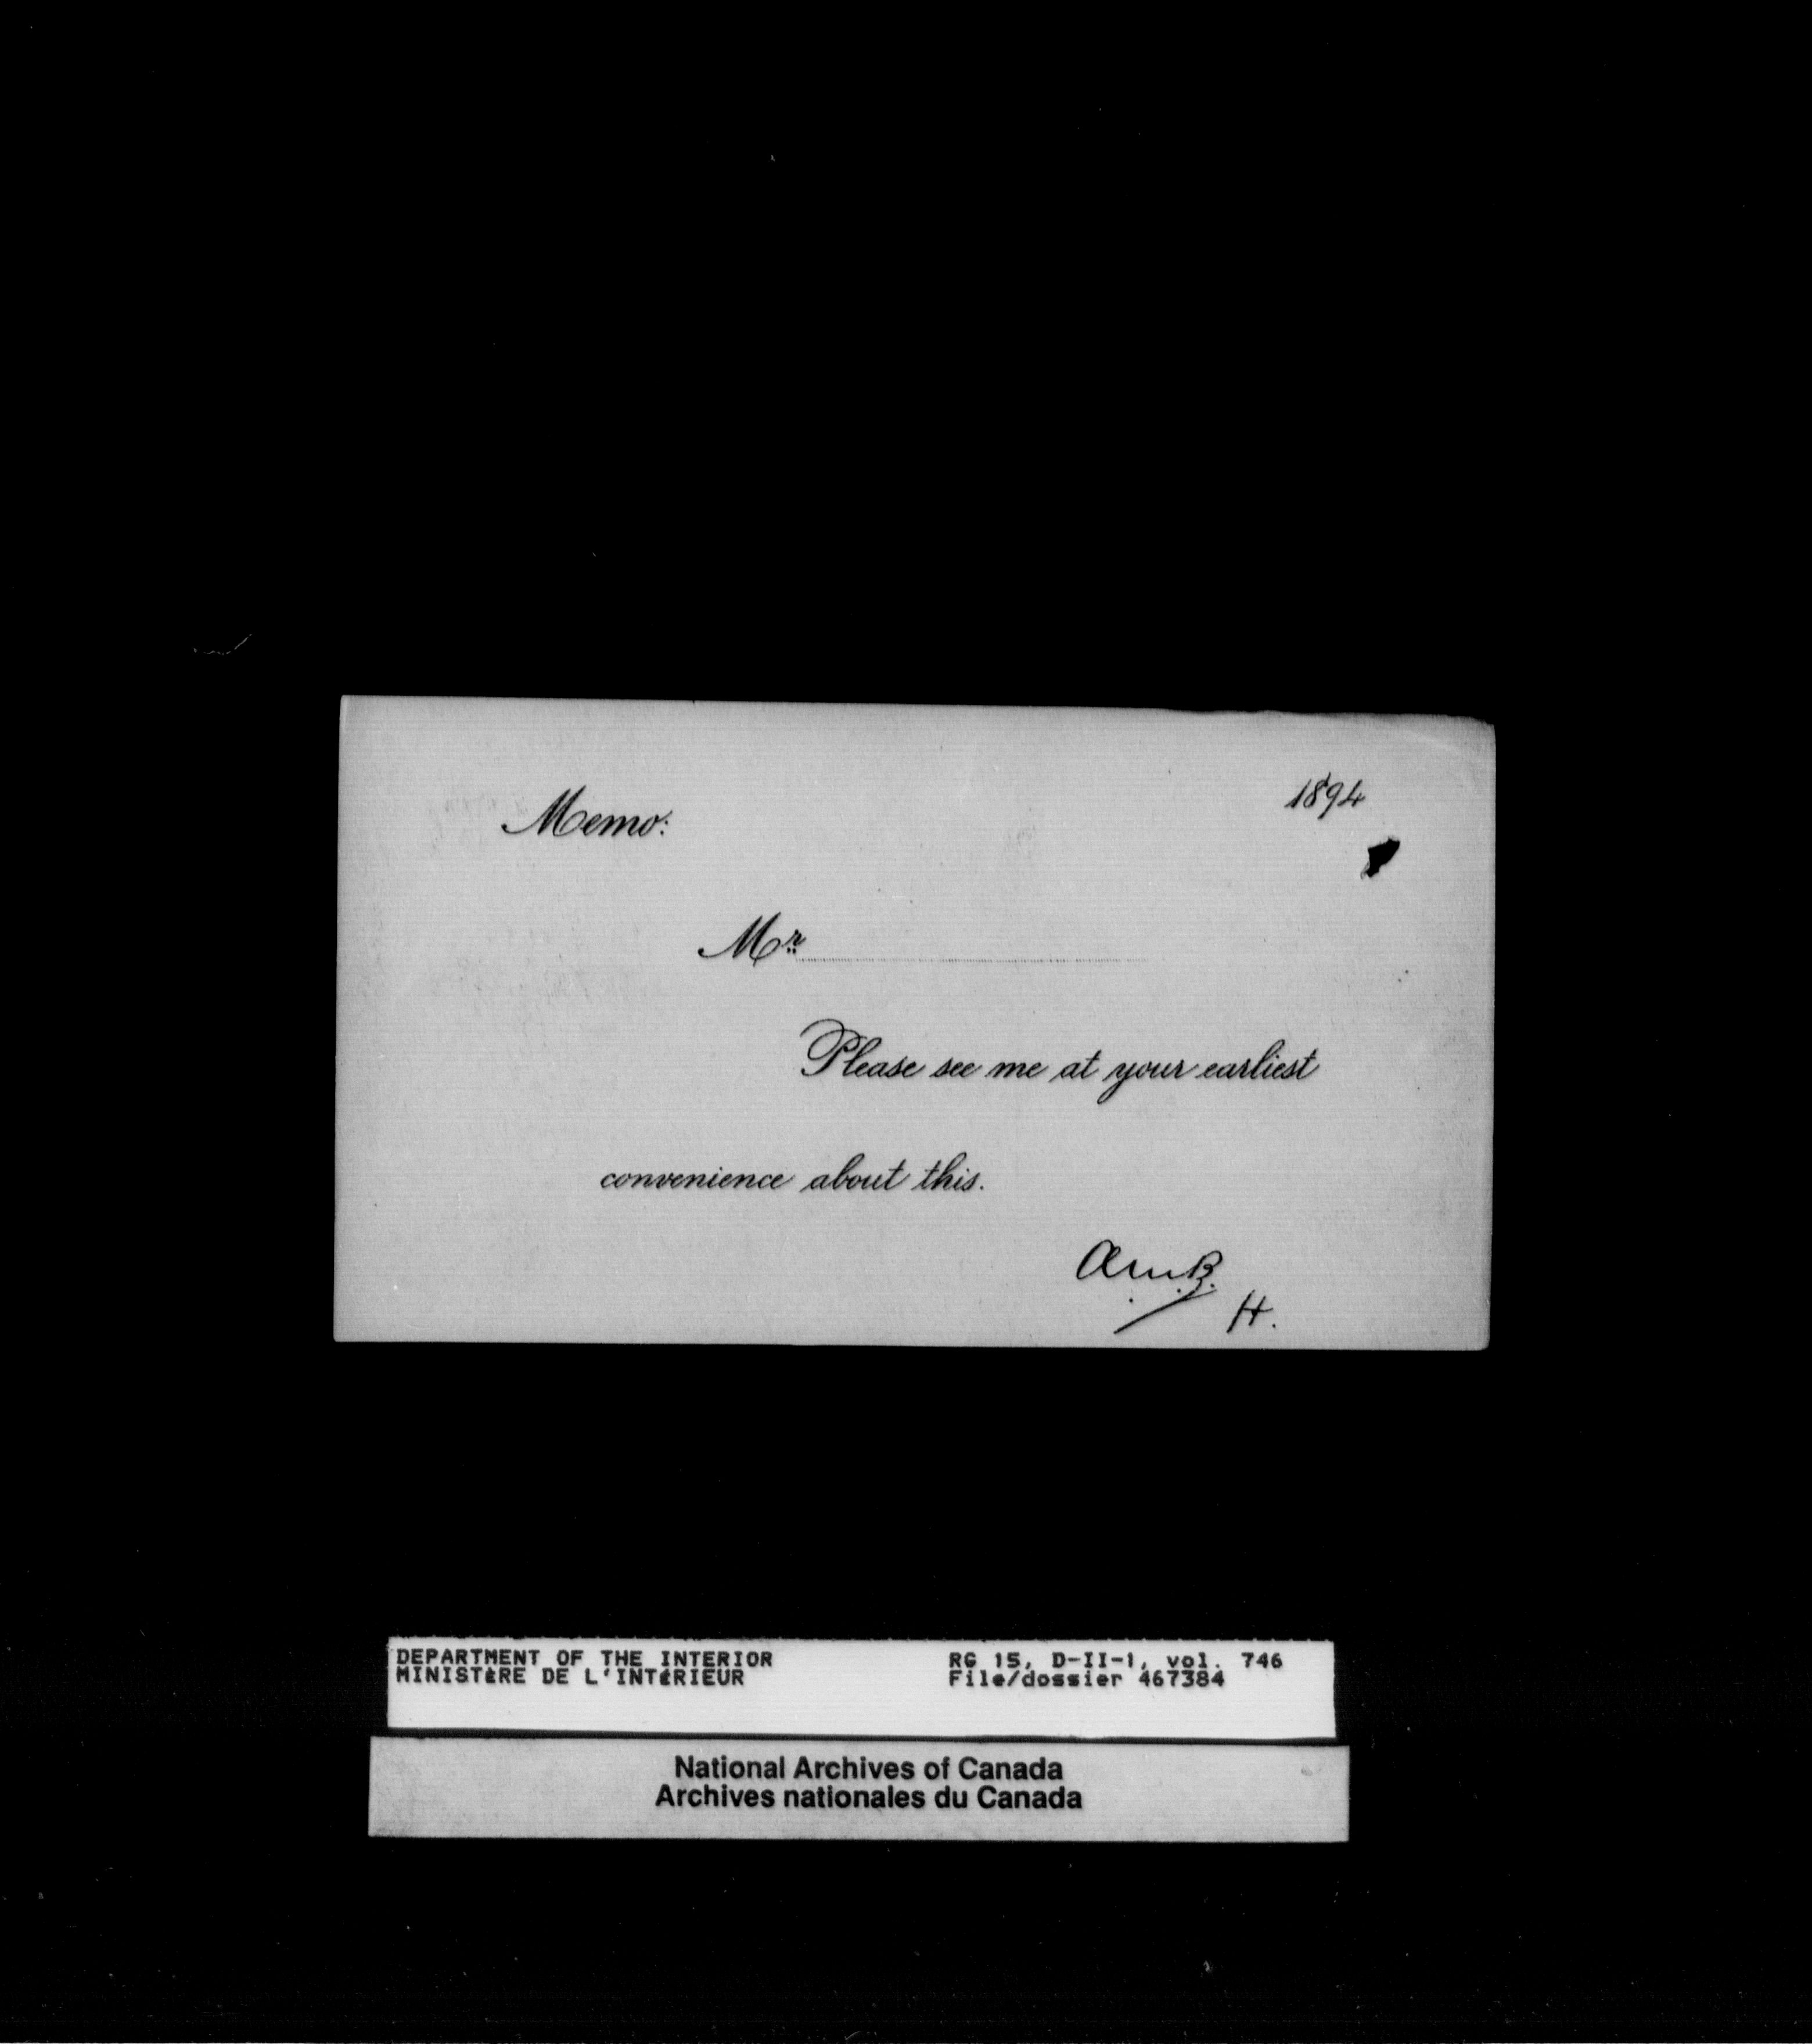 1894
Memo:
Mr
Please see me at your earliest
convenience about this.
A.M.B.
H.
DEPARTMENT OF THE INTERIOR RG 15, D-II-1, vol. 746
MINISTÈRE DE L'INTÉRIEUR File/dossier 467384
National Archives of Canada
Archives nationales du Canada